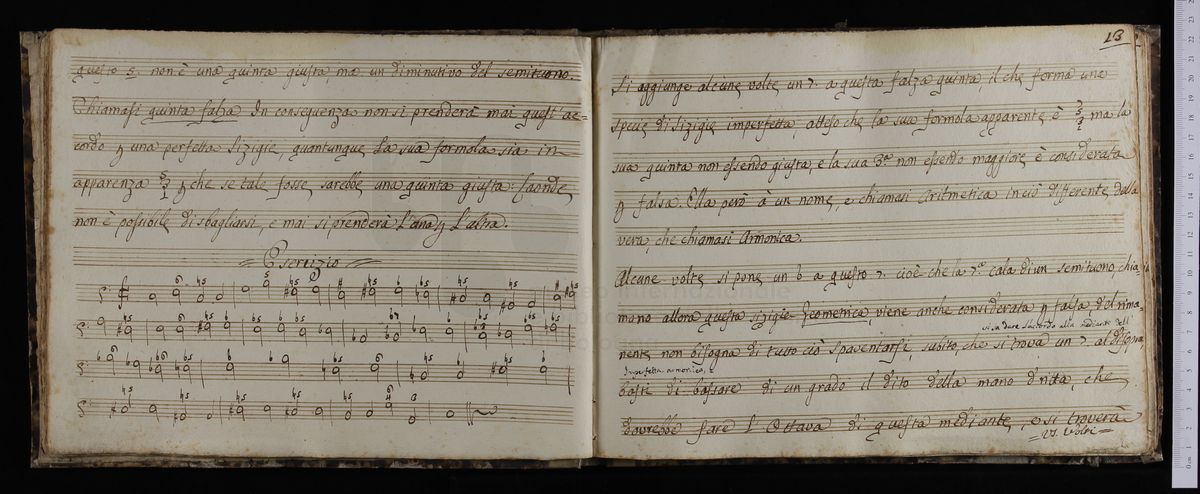 questo 5. non è una quinta giusta, ma un diminutivo del semituono.
Chiamasi quinta falsa In conseguenza non si prenderà mai quest' ac-
cordo p una perfetta Sizigie, quantunque la sua formola sia in
apparenza 5/3 p che se tale fosse, sarebbe una quinta giusta: Laonde
non è possibile di sbagliarsi, e mai si prenderà L'una p L'altra.
Esercizio
13
Si aggiunge alcune volte un 7. a questa falsa quinta, il che forma una
specie di Sizigie imperfetta, atteso che la sua formola apparente è ma la
sua quinta non essendo giusta, e la sua 3.a non essendo maggiore è considerata
p falsa. Ella però à un nome, e chiamasi Aritmetica in ciò differente dalla
vera, che chiamasi Armonica.
Alcune volte si pone un b a questo 7. cioè che la 7.a cala di un semituono, chia-
mano allora questa sizigie Geometrica, viene anche considerata p falsa, del rima-
nente non bisogna di tutto ciò spaventarsi, subito, che si trova un 7. al disopra
si sa dare l'accordo alla mediante dell'
Imperfetta armonica, e
basti di bassare di un grado il dito della mano dritta, che
dovrebbe fare l'Ottava di questa mediante, e si troverà
Vi Volti